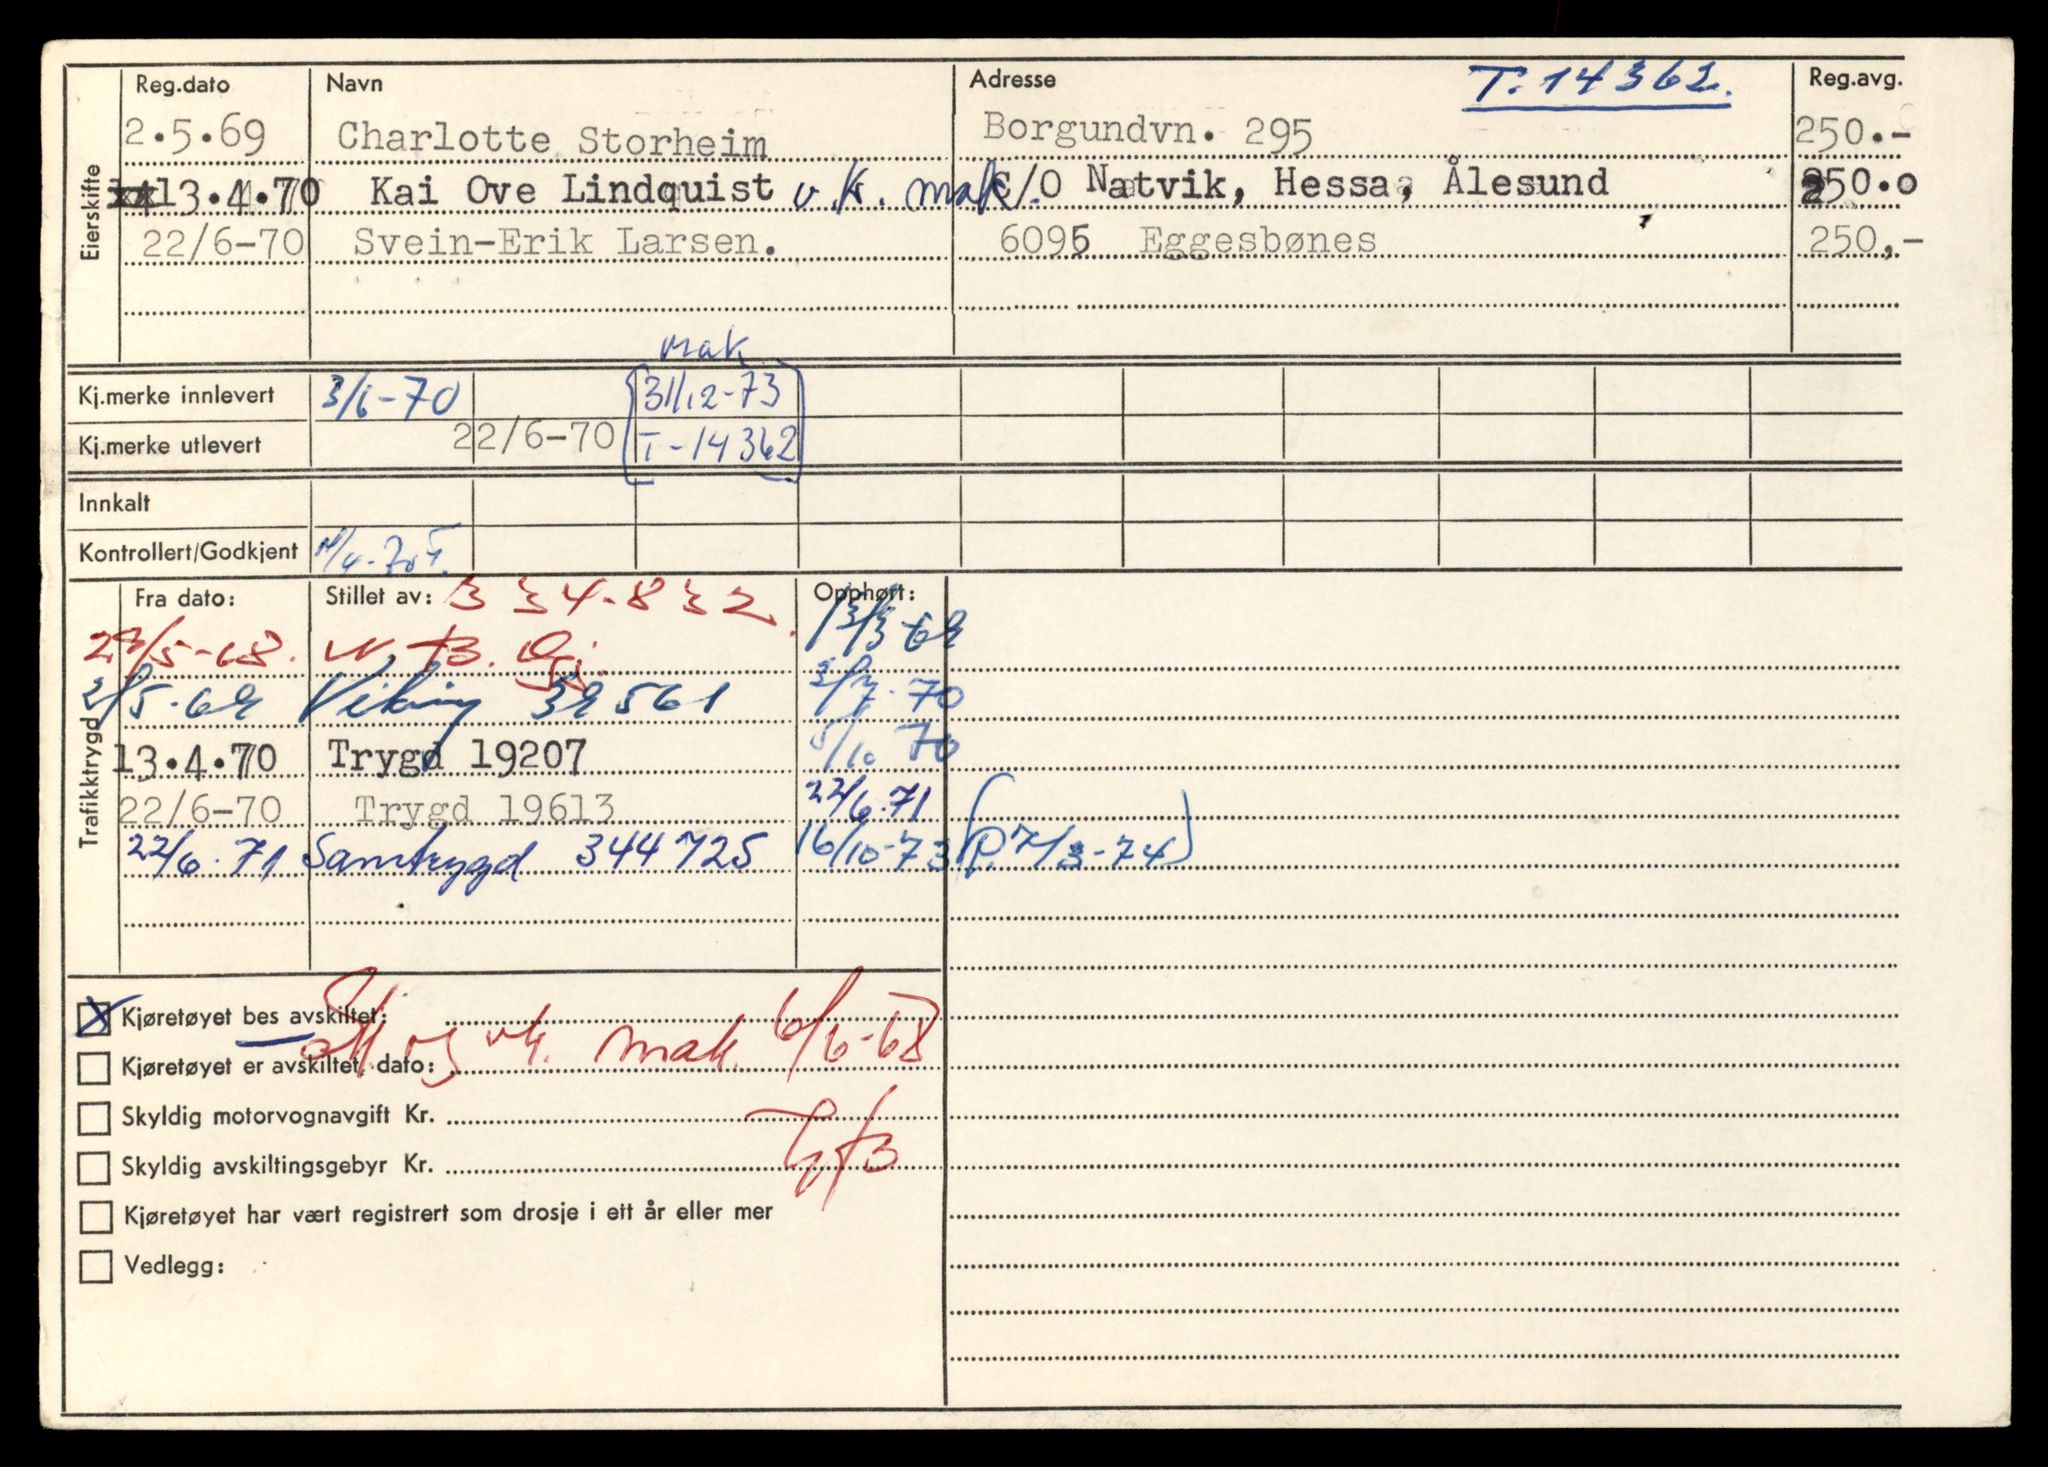 Reg.dato Navn Adresse T. 14362. Reg.avg.
Eierskifte
2.5.69 Charlotte Storheim Borgundvn. 295 250.-
13.4.70 Kai Ove Lindquist v.k. mak c/O Natvik, Hessa, Ålesund 250.0
22/6-70 Svein-Erik Larsen. 6095 Eggesbønes 250,-
mak
Kj.merke innlevert 3/6-70 31/12-73
Kj.merke utlevert 22/6-70 T-14362
Innkalt
Kontrollert/Godkjent
Trafikktrygd
Fra dato: Stillet av: 334-832 Opphørt:
13/3-69
2/5-69 Viking 39561 70
13.4.70 Trygd 19207 5/10 70
22/6-70 Trygd 19613 22/6.71
22/6.71 Samtrygd 344725 16/10-73 (P. 7/3-74)
Kjøretøyet bes avskiltet:
ok. og vk. mak. 6/6-68
Kjøretøyet er avskiltet, dato:
Skyldig motorvognavgift Kr.
Skyldig avskiltingsgebyr Kr.
Kjøretøyet har vært registrert som drosje i ett år eller mer
Vedlegg: